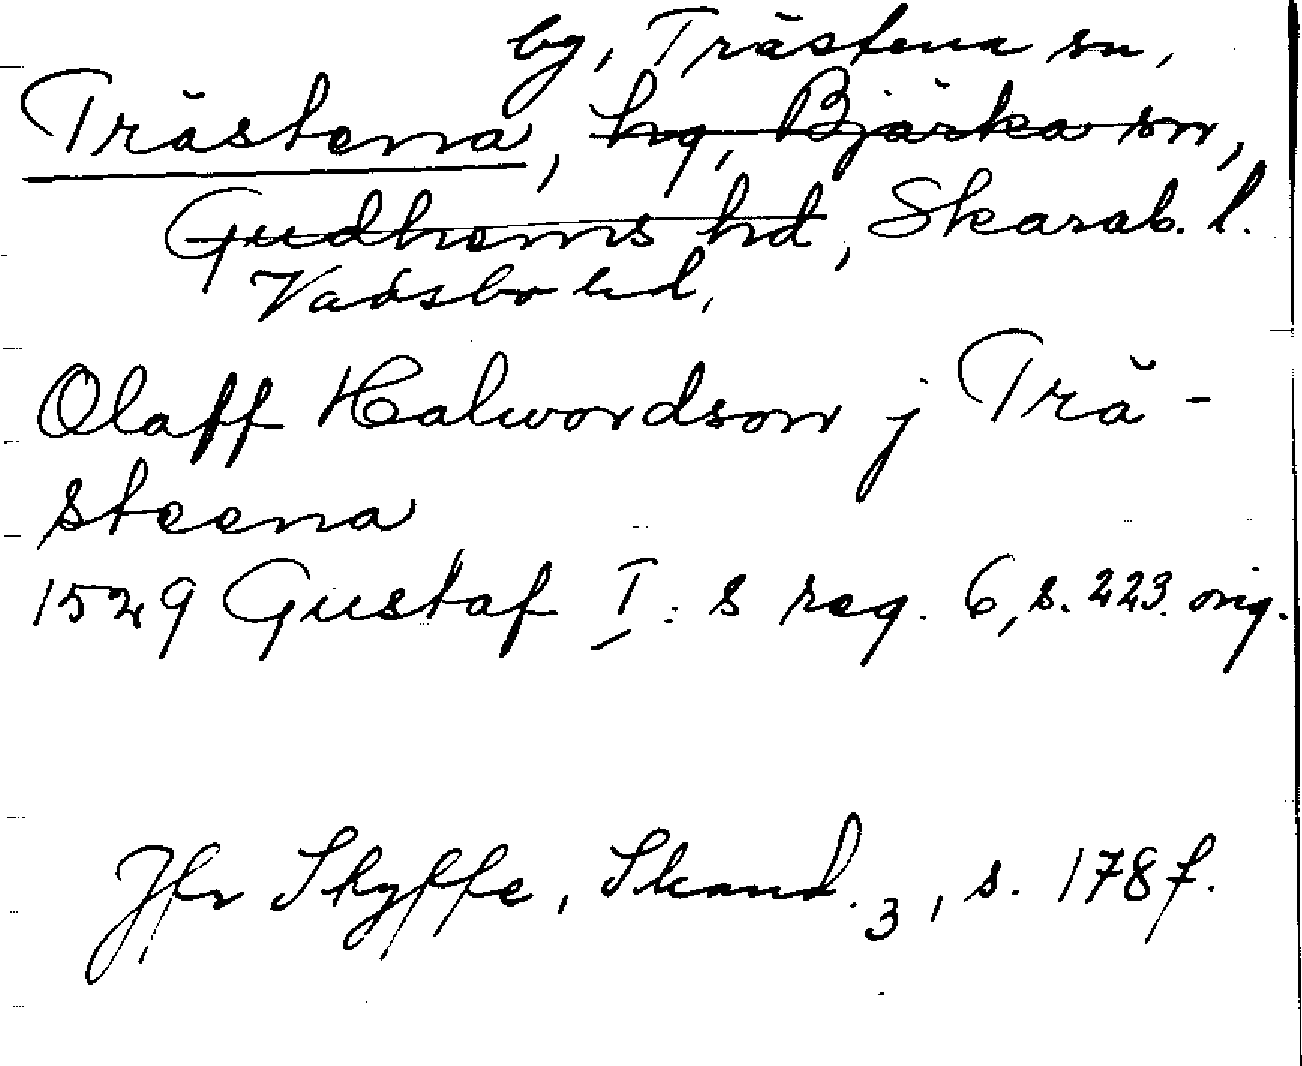 by, Trästena sn,
Trästena, hg, Bjärka sn,
Gudhems hd, Skarab. l.
Vadsbo hd,
Olaff Halwordson j Trä-
steena
1529 Gustaf I:s reg. 6, s. 223. orig.
Jfr Skyffe, Skand. 3, s. 178 f.